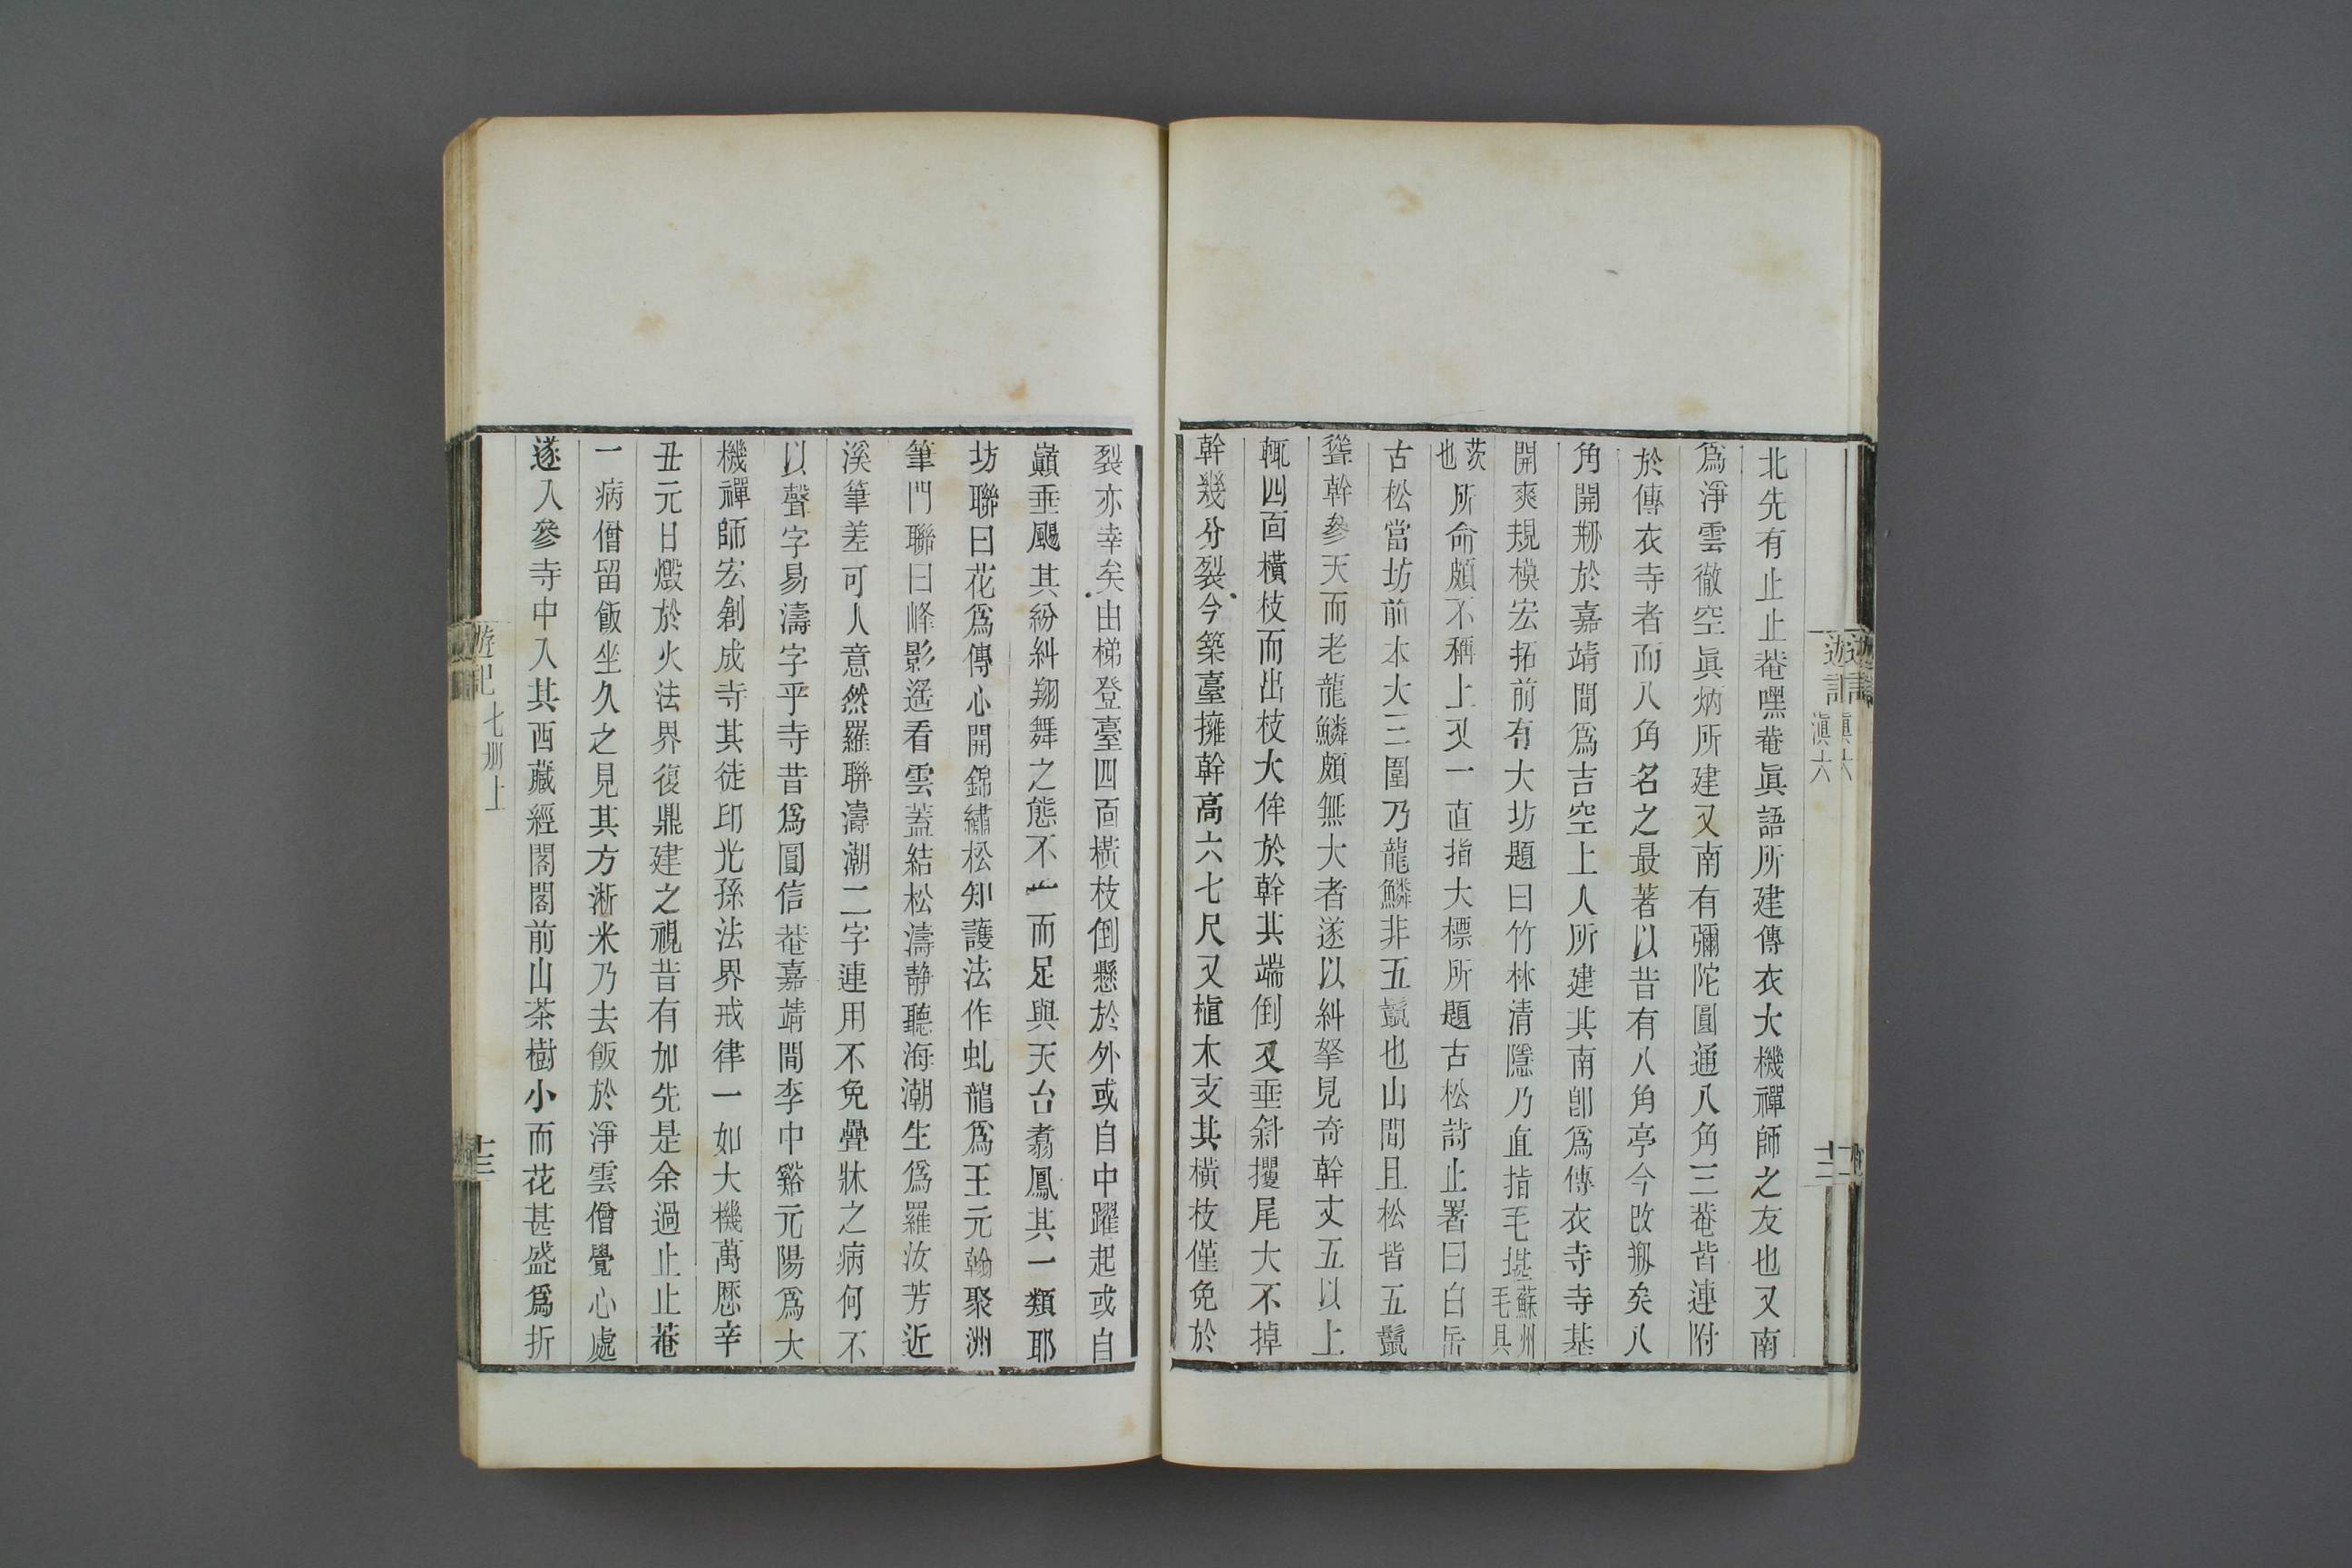 遊記
滇六
十二
北先有止止菴嘿菴眞語所建傳衣大機禪師之友也又南
爲淨雲徹空眞炳所建又南有彌陀圓通八角三菴皆連附
於傳衣寺者而八角名之最著以昔有八角亭今改剏矣八
角開剏於嘉靖間爲吉空上人所建其南卽爲傳衣寺寺基
開爽規模宏拓前有大坊題曰竹林清隱乃直指毛堪蘇州毛具
茨也所命頗不稱上又一直指大標所題古松詩止署曰白岳
古松當坊前本大三圍乃龍鱗非五鬣也山間且松皆五鬣
聳幹參天而老龍鱗頗無大者遂以糾拏見奇幹丈五以上
輒四面橫枝而出枝大侔於幹其端倒又垂斜攫尾大不掉
幹幾分裂今築臺擁幹高六七尺又植木支其橫枝僅免於
裂亦幸矣由梯登臺四面橫枝倒懸於外或自中躍起或自
巔垂颺其紛糾翔舞之態不一而足與天台翥鳳其一類耶
坊聯曰花爲傳心開錦繡松知護法作虬龍爲王元翰聚洲
筆門聯曰峰影遙看雲蓋結松濤静聽海潮生爲羅汝芳近
溪筆差可人意然羅聯濤潮二字連用不免疊牀之病何不
以聲字易濤字乎寺昔爲圓信菴嘉靖間李中谿元陽爲大
機禪師宏創成寺其徒印光孫法界戒律一如大機萬歷辛
丑元日燬於火法界復鼎建之視昔有加先是余過止止菴
一病僧留飯坐久之見其方淅米乃去飯於淨雲僧覺心處
遂入參寺中入其西藏經閣閣前山茶樹小而花甚盛爲折
遊記
七册上
十三